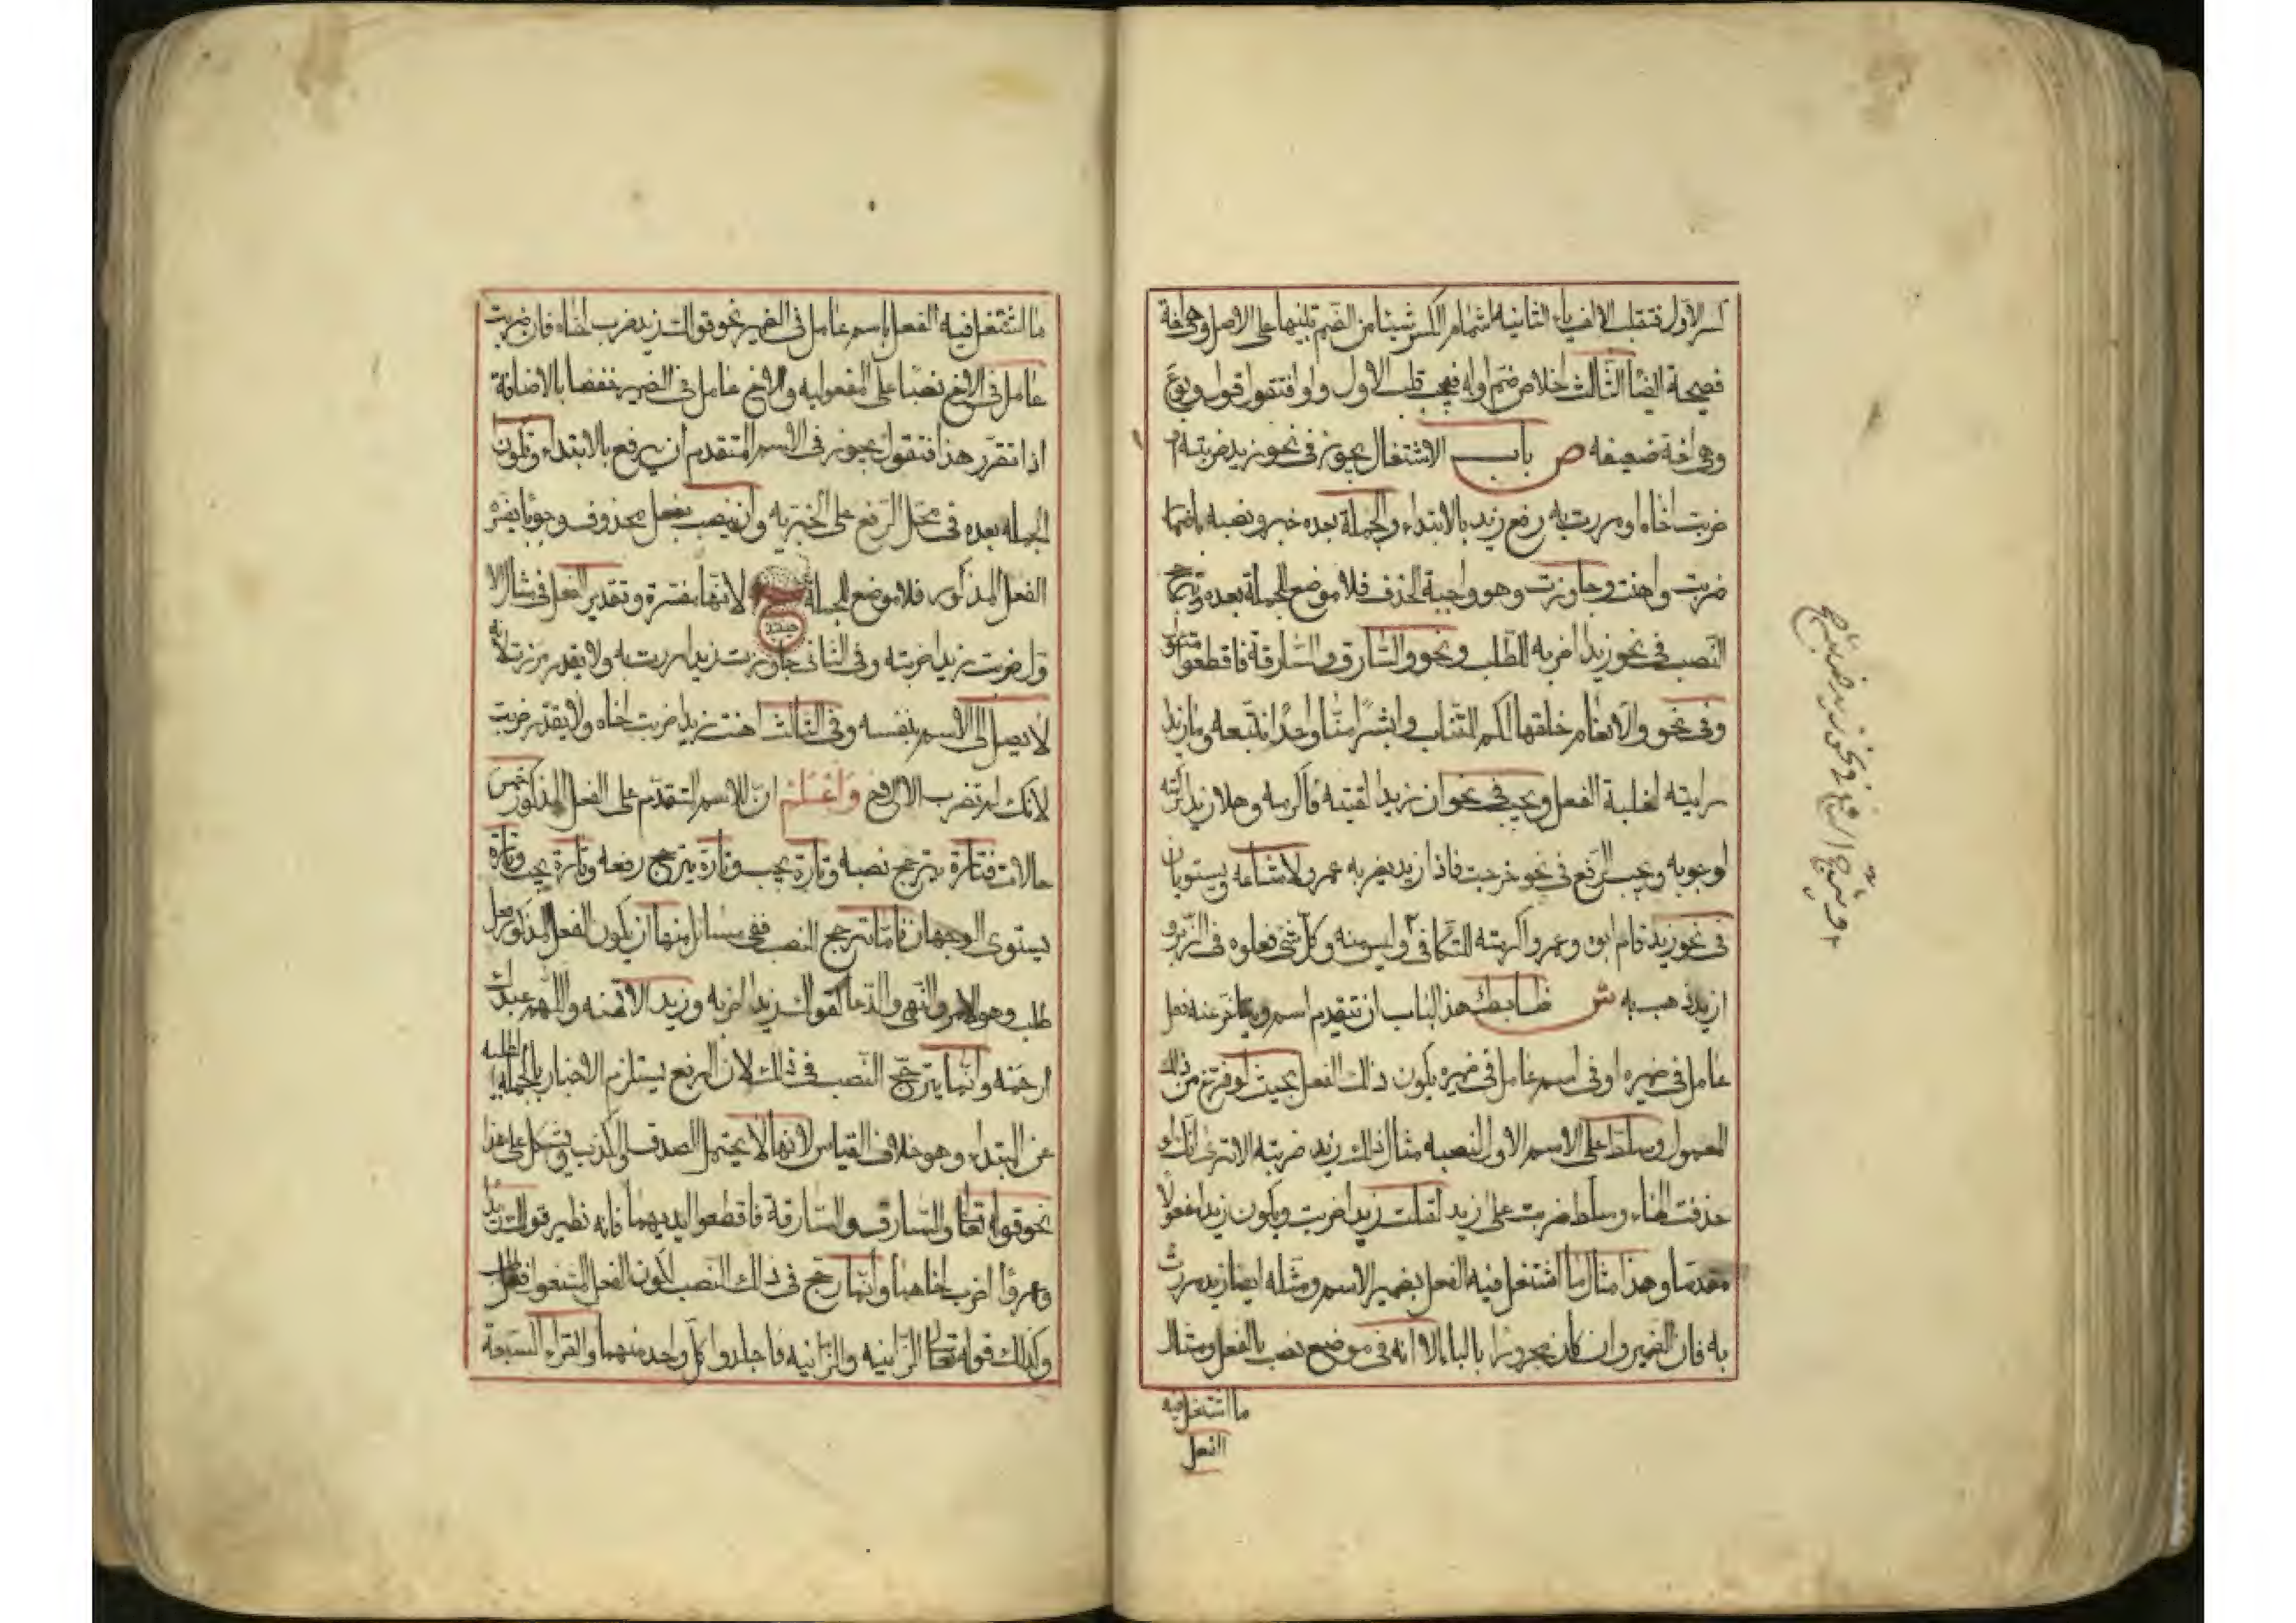 كسر الاول فتقلب الالف ياء الثانيه اشمام الكسر شيئا من الضم تنبيها على الاصل وهي لغة
فصيحة ايضا الثالث اخلاص ضم اوله فيجب قلب الاول واوا فتقول قول وبوع
وهي لغة ضعيفه ص باب الاشتغال يجوز في نحو زيد ضربته او
ضربت اخاه او مررت به رفع زيد بالابتداء والجملة بعده خبر ونصبه باضمار
ضربت واهنت وجاوزت وهو واجبة الحذف فلا موضع للجملة بعده ويترجح
النصب في نحو زيدا اضربه للطلب ونحو والسارق والسارقة فاقطعوا متاول
وفي نحو والانعام خلقها لكم للتناسب وابشرا منا واحدا نتبعه وما زيدا
رايته لغلبة الفعل ويجب في نحو ان زيدا لقيته فاكرمه وهلا زيدا اكرمته
لوجوبه ويجب الرفع في نحو خرجت فاذا زيد يضربه عمرو لامتناعه ويستويان
في نحو زيد قام ابوه وعمرو اكرمته للتكافى وليس منه وكل شئ فعلوه في الزبر و
ازيد ذهب به ش ضابط هذا الباب ان تتقدم اسم ويتاخر عنه فعل
عامل في ضميره او في اسم عامل في ضميره يكون ذلك الفعل بحيث لو فرغ من ذلك
المعمول وسلط على الاسم الاول لنصبه مثال ذلك زيد ضربته الا ترى انك لو
حذفت الهاء وسلط ضربت على زيد لقلت زيدا ضربت ويكون زيدا مفعولا
مقدما وهذا مثال ما اشتغل فيه الفعل بضمير الاسم ومثله ايضا زيد مررت
به فان الضمير وان كان مجرورا بالباء الا انه في موضع نصب بالفعل ومثال
ما اشتغل فيه
الفعل
ويترجح الرفع في نحو زيد ضربته
ما اشتغل فيه الفعل باسم عامل في الضمير نحو قولك زيد ضرب اخاه فان ضربت
عامل في الاخ نصبا على المفعوليه والاخ عامل في الضمير خفضا بالاضافة
اذا تقرر هذا فنقول يجوز في الاسم المتقدم ان يرفع بالابتداء وتكون
الجمله بعده في محل الرفع على الخبريه وان ينصب بفعل محذوف وجوبا يفسره
الفعل المذكور فلا موضع للجملة حينئذ لانها مفسرة وتقدير الفعل في مثال الا
ول ضربت زيدا ضربته وفي الثاني جاوزت زيدا مررت به ولا يقدر مررت لانه
لا يصل الى الاسم بنفسه وفي الثالث اهنت زيدا ضربت اخاه ولا يقدر ضربت
لانك لم تضرب الا الاخ واعلم ان للاسم المتقدم على الفعل المذكور خمس
حالات فتارة يترجح نصبه وتارة يجب وتارة يترجح رفعه وتارة يجب وتارة
يستوى الوجهان فاما ترجح النصب ففي مسائل منها ان يكون الفعل المذكور فعل
طلب وهو الامر والنهى والدعا كقولك زيدا اضربه وزيدا لا تهنه واللهم عبدك
ارحمه وانما يترجح النصب في ذلك لان الرفع يستلزم الاخبار بالجمله الطلبيه
عن المبتداء وهو خلاف القياس لانها لا يحتمل الصدق والكذب ويشكل على هذا
نحو قوله تعالى والسارق والسارقة فاقطعوا ايديهما فانه نظير قولك زيدا
وعمروا اضرب اخاهما وانما رجح في ذلك النصب لكون الفعل المشغول فعل طلب
وكذلك قوله تعالى الزانيه والزانيه فاجلدوا كل واحد منهما والقراء السبعة